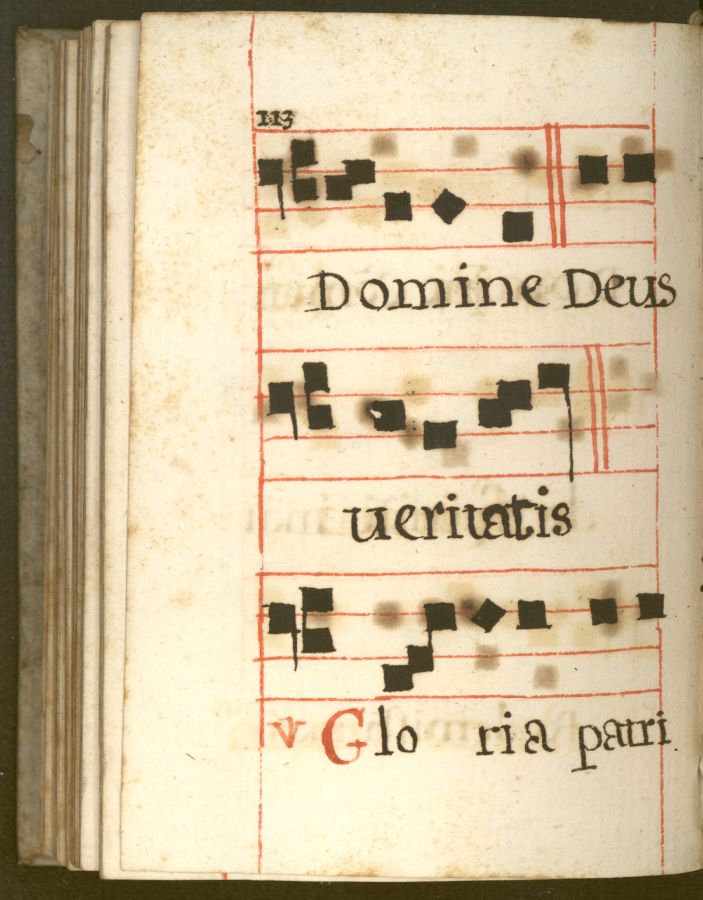 113
Domine Deus
ueritatis
V Glo ria patri.